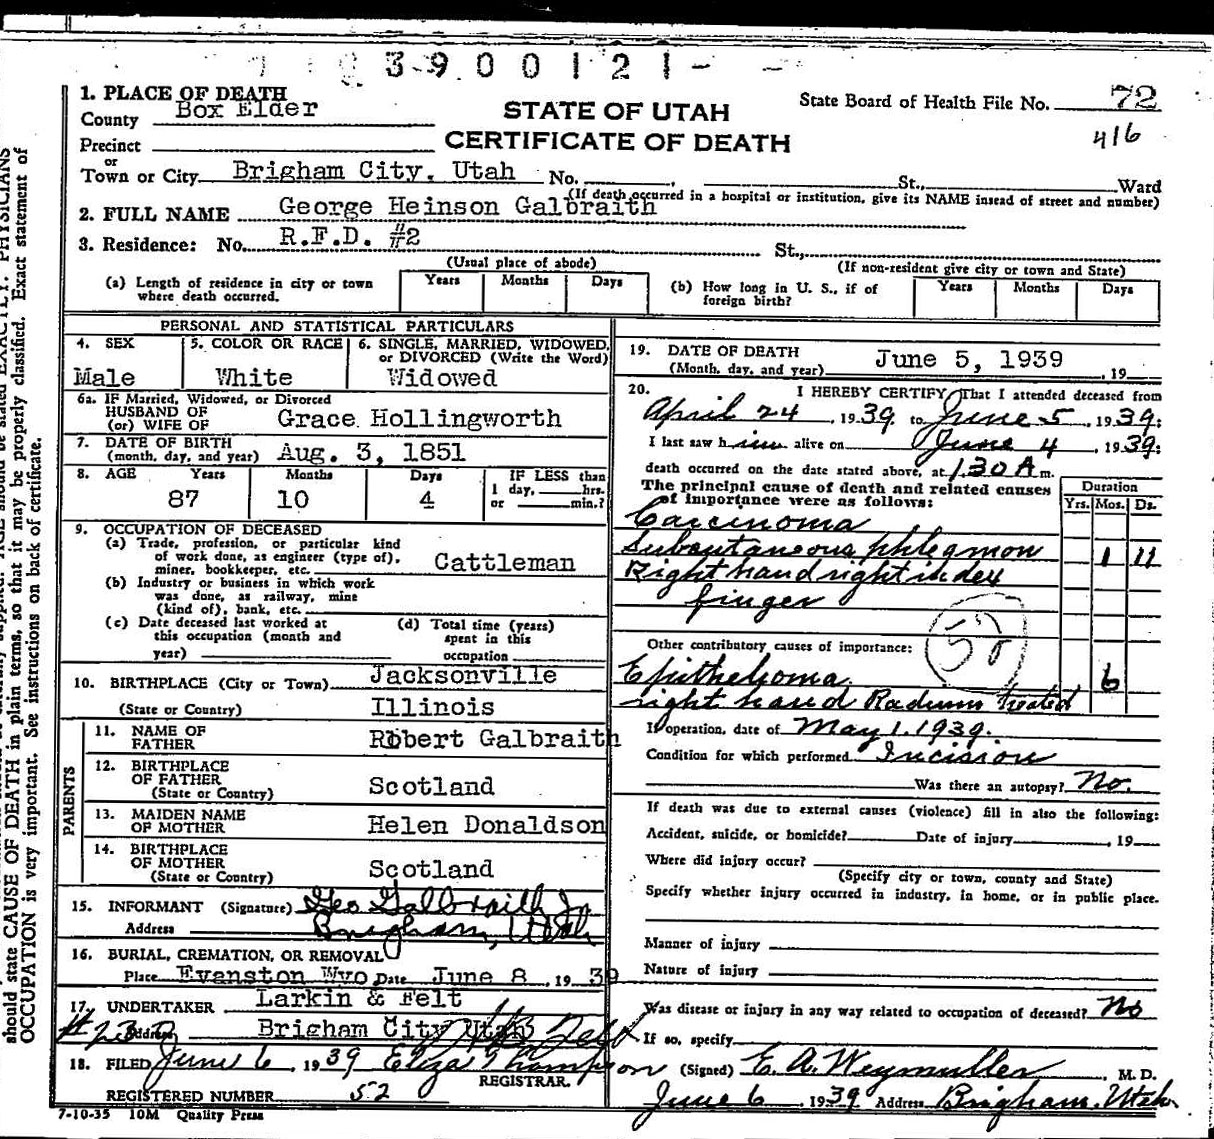 3900121-
1. PLACE OF DEATH
County Box Elder
STATE OF UTAH
CERTIFICATE OF DEATH
State Board of Health File No. 72
416
Precinct
or
Town or City Brigham City, Utah No. , St., Ward
(If death occurred in a hospital or institution, give its NAME instead of street and number)
2. FULL NAME George Heinson Galbraith
3. Residence: No. R.F.D. #2 St.,
(Usual place of abode) (If non-resident give city or town and State)
(a) Length of residence in city or town where death occurred. Years Months Days
(b) How long in U. S., if of foreign birth? Years Months Days
PERSONAL AND STATISTICAL PARTICULARS
4. SEX 5. COLOR OR RACE 6. SINGLE, MARRIED, WIDOWED, or DIVORCED (Write the Word)
Male White Widowed
6a. IF Married, Widowed, or Divorced
HUSBAND OF
(or) WIFE OF Grace Hollingworth
7. DATE OF BIRTH
(month, day, and year) Aug. 3, 1851
8. AGE Years Months Days IF LESS than
1 day, hrs.
or min.?
87 10 4
9. OCCUPATION OF DECEASED
(a) Trade, profession, or particular kind
of work done, as engineer (type of),
miner, bookkeeper, etc. Cattleman
(b) Industry or business in which work
was done, as railway, mine
(kind of), bank, etc.
(c) Date deceased last worked at
this occupation (month and
year)
(d) Total time (years)
spent in this
occupation
10. BIRTHPLACE (City or Town) Jacksonville
(State or Country) Illinois
PARENTS
11. NAME OF
FATHER Robert Galbraith
12. BIRTHPLACE
OF FATHER
(State or Country) Scotland
13. MAIDEN NAME
OF MOTHER Helen Donaldson
14. BIRTHPLACE
OF MOTHER
(State or Country) Scotland
15. INFORMANT (Signature) Geo Galbraith Jr
Address Brigham, Utah
16. BURIAL, CREMATION, OR REMOVAL
Place Evanston Wyo Date June 8, 1939
17. UNDERTAKER Larkin & Felt
Address Brigham City Utah
18. FILED June 6, 1939 Eliza Thompson
REGISTRAR.
REGISTERED NUMBER 52
7-10-35 10M Quality Press
19. DATE OF DEATH
(Month, day, and year) June 5, 1939 , 19
20. I HEREBY CERTIFY, That I attended deceased from
April 24, 1939, to June 5, 1939;
I last saw him alive on June 4, 1939;
death occurred on the date stated above, at 1.30 A m.
The principal cause of death and related causes
of importance were as follows:
Duration
Yrs. Mos. Ds.
Carcinoma
Subcutaneous phlegmon 1 11
Right hand right index
finger
Other contributory causes of importance:
Epithelioma 6
right hand Radium treated
If operation, date of May 1. 1939.
Condition for which performed Incision
Was there an autopsy? No.
If death was due to external causes (violence) fill in also the following:
Accident, suicide, or homicide? Date of injury , 19
Where did injury occur?
(Specify city or town, county and State)
Specify whether injury occurred in industry, in home, or in public place.
Manner of injury
Nature of injury
Was disease or injury in any way related to occupation of deceased? No
If so, specify
(Signed) E. A. Weymuller, M. D.
June 6, 1939 Address Brigham, Utah
should state CAUSE OF DEATH in plain terms, so that it may be properly classified. Exact statement of
OCCUPATION is very important. See instructions on back of certificate.